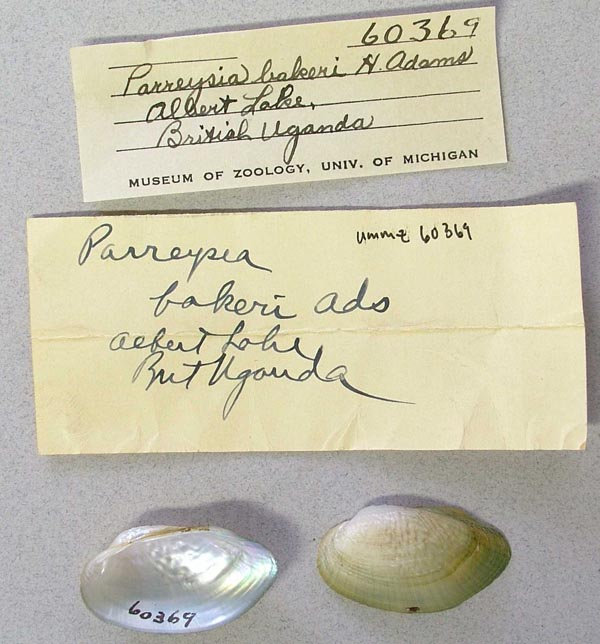 60369
Parreysia bakeri H. Adams
Albert Lake,
British Uganda
MUSEUM OF ZOOLOGY, UNIV. OF MICHIGAN
ummz 60369
Parreysia
bakeri ads
Albert Lake
Brit Uganda
60369